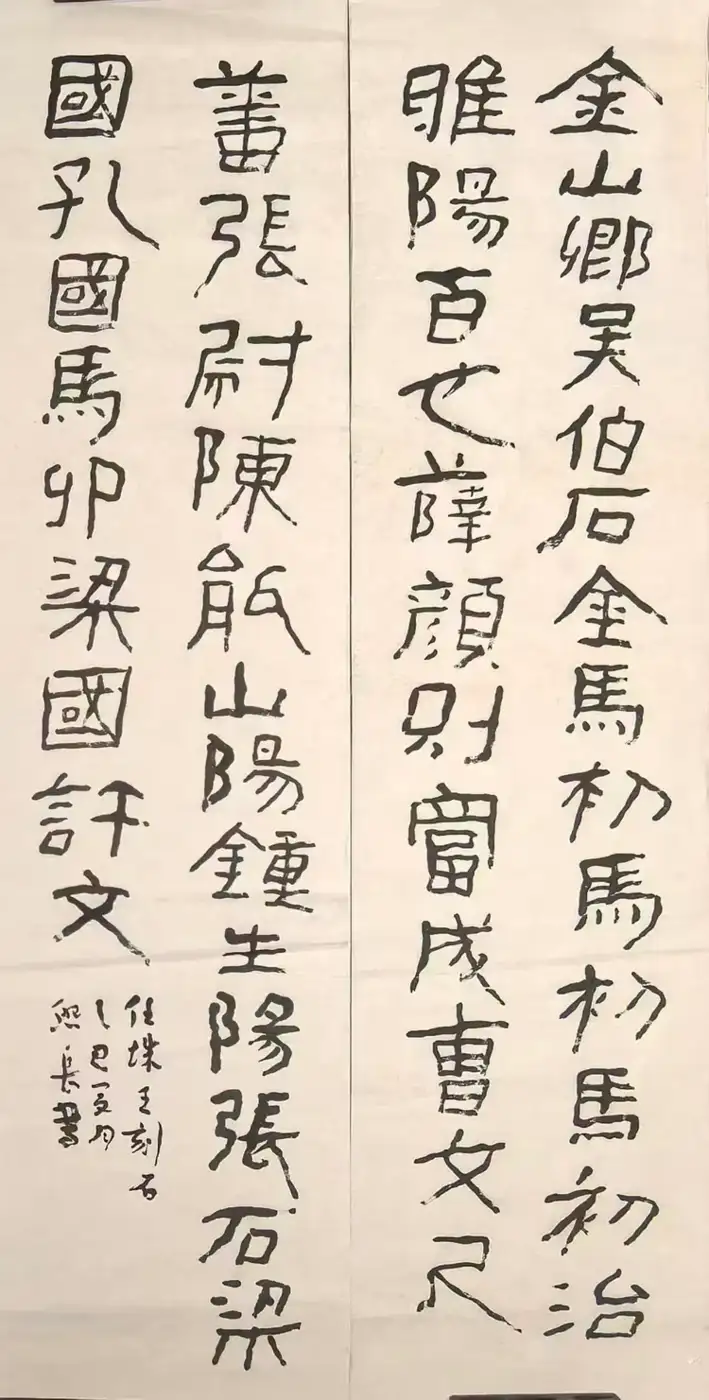 金山鄉吳伯石金馬朸馬朸馬初治
睢陽百也薛顏則當成曹文尺
蕃張尉陳能山陽鍾生陽張石梁
國孔國馬卯梁國許文
任城王刻石
乙巳夏月
熙長書